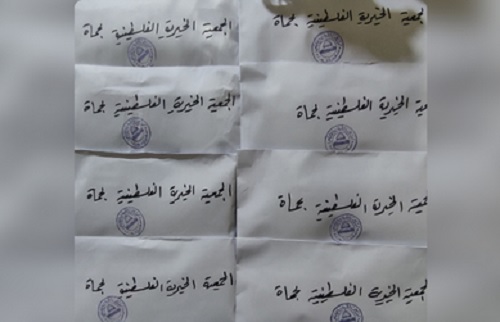 الجمعية الخيرية الفلسطينية بحماة
الجمعية الخيرية الفلسطينية بحماة
الجمعية الخيرية الفلسطينية بحماة
الجمعية الخيرية الفلسطينية بحماة
الجمعية الخيرية الفلسطينية بحماة
الجمعية الخيرية الفلسطينية بحماة
الجمعية الخيرية الفلسطينية بحماة
الجمعية الخيرية الفلسطينية بحماة